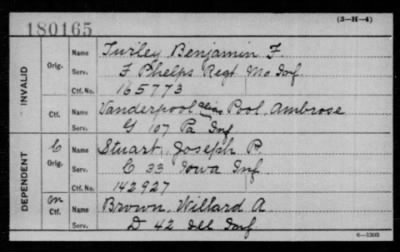 180165
(3-H-4)
INVALID
Orig. Name Turley Benjamin F.
Serv. F Phelps Regt Mo Inf.
Ctf. No. 165773
Ctf. Name Vanderpool alias Pool, Ambrose
Serv. G 107 Pa Inf
DEPENDENT
C Orig. Name Stuart, Joseph R.
Serv. C 33 Iowa Inf.
Ctf. No. 142927
m Ctf. Name Brown, Willard A
Serv. D 42 Ill Inf